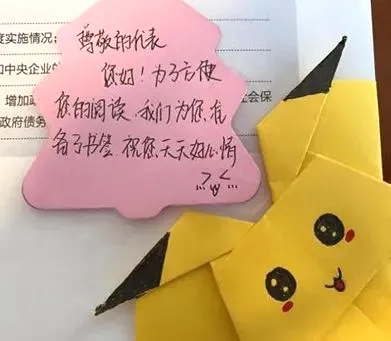 度实施情况;
和中央企业的
增加政
政府债务
社会保
尊敬的代表
您好！为了方便
您的阅读，我们为您准
备了书签，祝您天天好心情